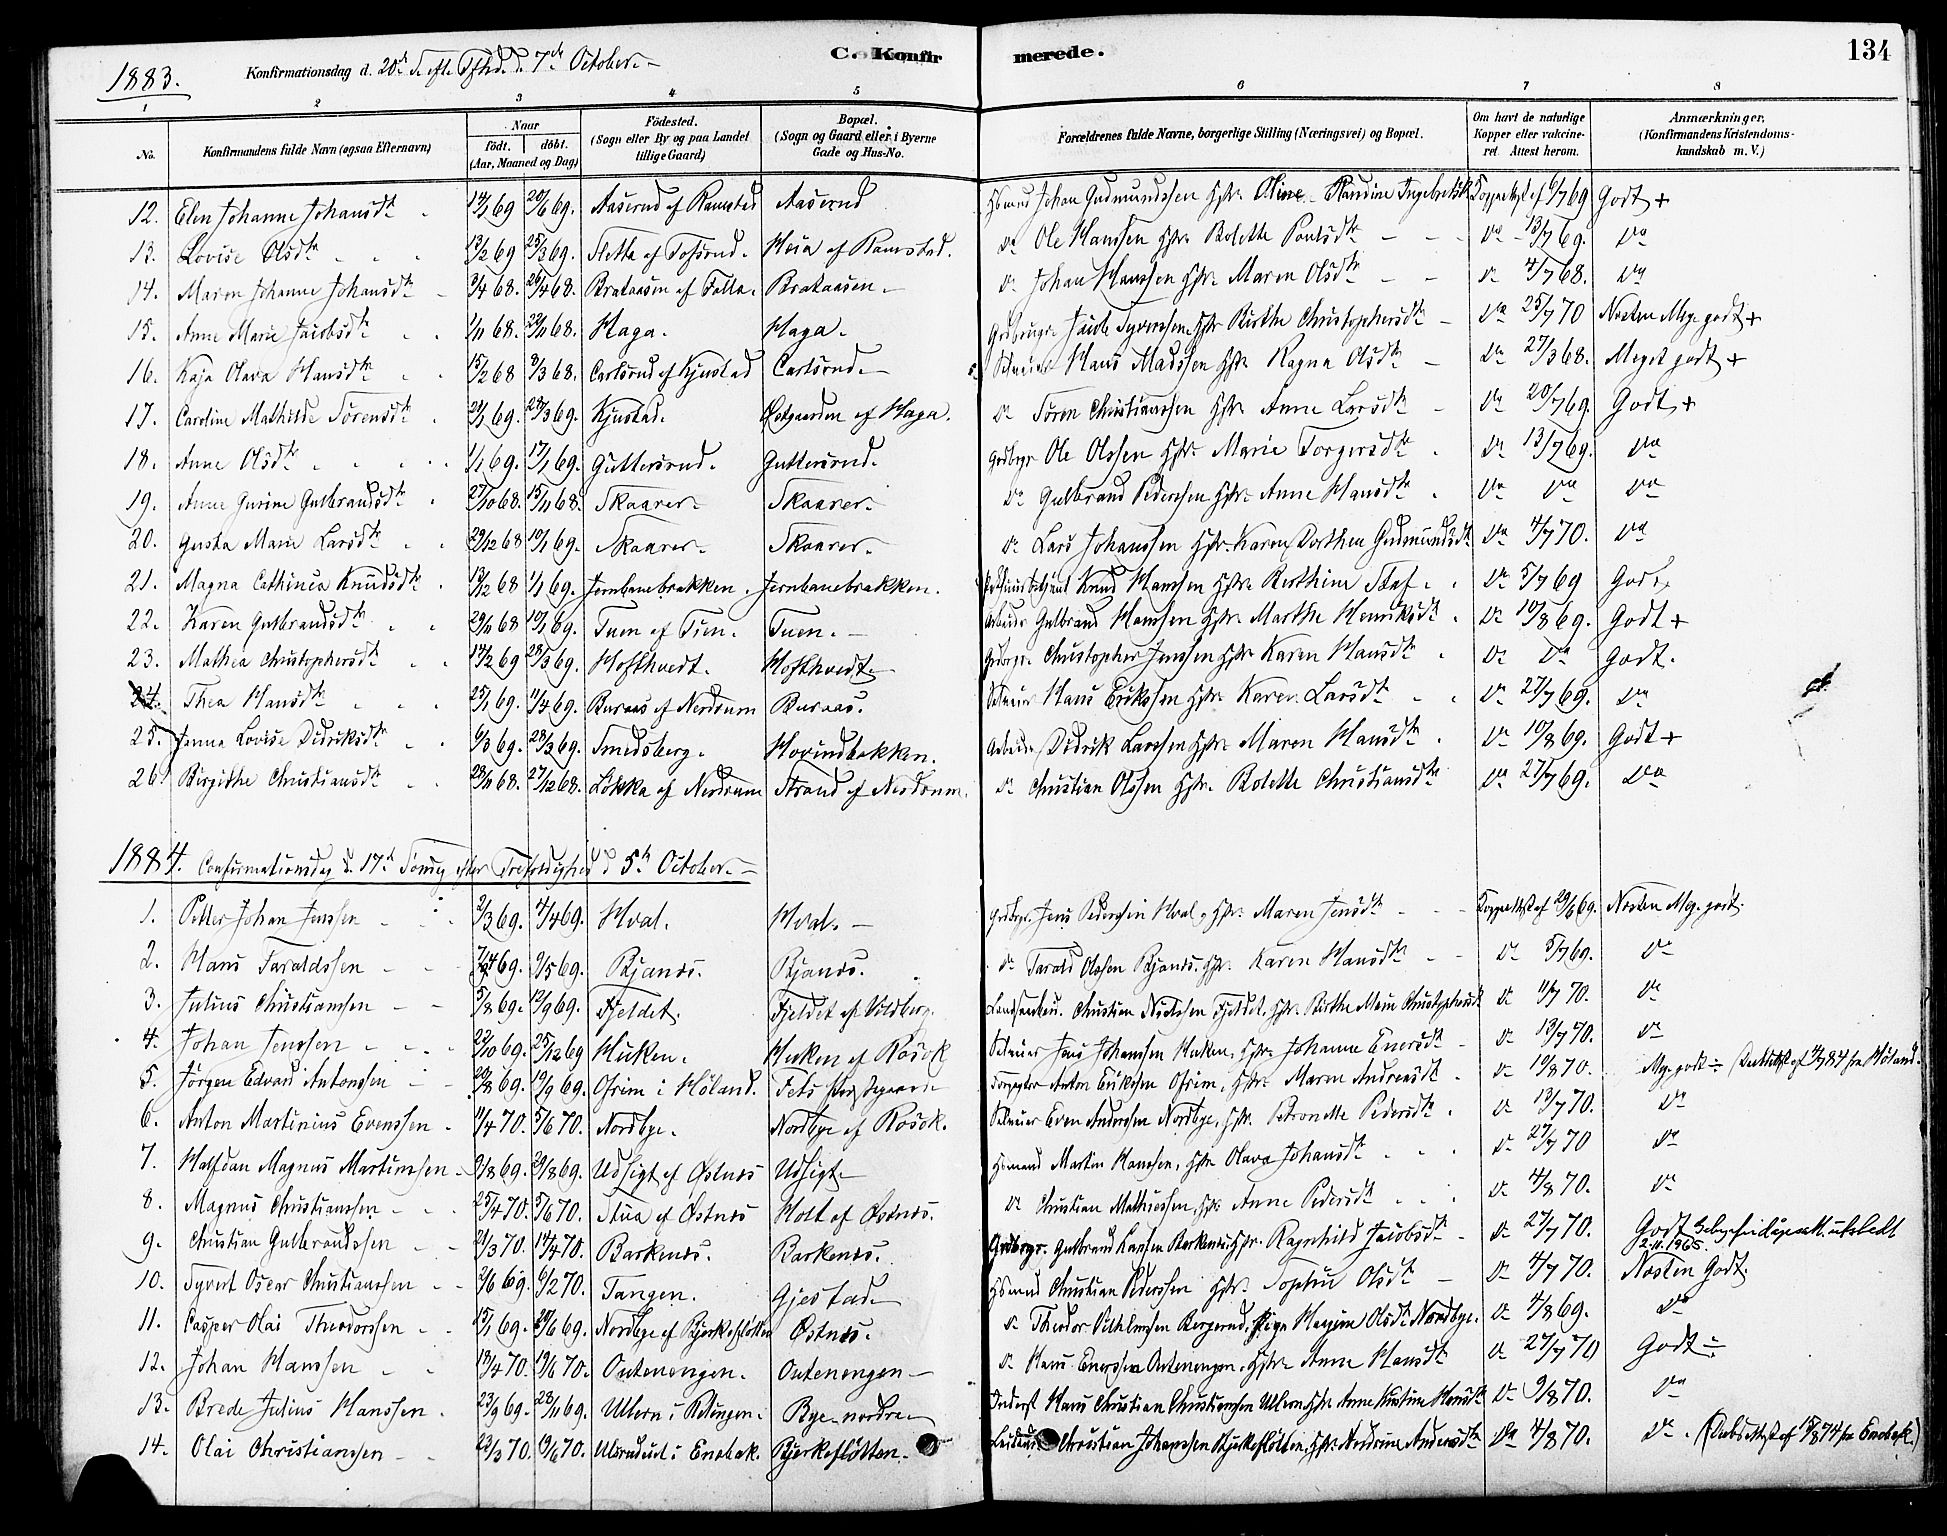 134
1883. Konfirmationsdag d. 20de S. eft. Tfhd. d. 7de October.
C. Konfirmerede.
1 2 3 4 5 6 7 8
No. Konfirmandens fulde Navn (ogsaa Efternavn) Naar født. døbt. (Aar, Maaned og Dag) Fødested. (Sogn eller By og paa Landet tillige Gaard) Bopæl. (Sogn og Gaard eller i Byerne Gade og Hus-No. Forældrenes fulde Navne, borgerlige Stilling (Næringsvei) og Bopæl. Om havt de naturlige Kopper eller vakcineret. Attest herom. Anmærkninger. (Konfirmandens Kristendomskundskab m. V.)
12. Elen Johanne Johansdtr 14/1 69 20/6 69. Aaserud af Ramstad Aaserud Hsmand Johan Gudmundssen Hstr. Oline Ingebretsd. Koppeattst af 6/7 69 Godt +
13. Lovise Olsdtr 13/2 69 25/3 69. Sletta af Hoia af Ramstad. do Ole Hanssen Hstr. Bolette Poulsdtr do 13/7 69. do
14. Maren Johanne Johansdtr 3/4 68. 26/4 68. Brataasen af Falla. Brataasen do Johan Hanssen Hstr. Maren Olsdtr do 4/7 68. do
15. Anne Marie Jacobsdtr 1/11 68. 22/11 68. Haga. Haga. Grdbruger Jacob Syversen Hstr. Birthe Christophersdtr do 25/7 70 Næsten Meg. godt +
16. Kaja Olava Hansdtr 15/2 68 8/3 68. Carlsrud af Kjustad Carlsrud Selveier Hans Madssen Hstr. Ragna Olsdtr do 27/3 68. Meget godt +
17. Caroline Mathilde Sørensdtr 28/3 69. Kjustad. Østgaarden af Haga. do Søren Christianssen Hstr. Anne Larsdtr do 20/7 69. Godt +
18. Anne Olsdtr 1/1 69. 17/1 69. Guttersrud. Guttersrud. Grdbrgr. Ole Olssen Hstr. Marie Torgersdtr do 13/7 69. do
19. Anne Gurine Gulbrandsdtr 27/10 68. 15/11 68. Skaarer. Skaarer. do Gulbrand Pederssen Hstr. Anne Hansdtr do do do
20. Gusta Marie Larsdtr 29/12 68 10/1 69. Skaarer. Skaarer. do Lars Johanssen Hstr. Karen Dorthea Gudmundsdtr do 4/7 70. do
21. Magna Cathinca Knudsdtr 13/12 68 1/1 69. Jernbanebrakken. Jernbanebrakken. Knud Hanssen Hstr. Berthine Staf do 5/7 69 Godt
22. Karen Gulbrandsdtr 29/11 68 10/1 69. Tuen af Tuen. Tuen. Arbeider Gulbrand Hanssen Hstr. Marthe Henriksdtr do 10/8 69. Godt +
23. Mathea Christophersdtr 14/2 69 28/3 69. Hofthvedt. Hofthvedt Grdbrgr. Christopher Jenssen Hstr. Karen Hansdtr do do Godt.
24. Thea Hansdtr 25/1 69. 11/4 69. Buraas af Nerdrum Buraas. Selveier Hans Erikssen Hstr. Karen Larsdtr do 27/7 69. do
25. Jenna Lovise Didriksdtr 6/3 69. 28/3 69. Smedsberg. Hovindbakken. Arbeider Didrik Larssen Hstr. Maren Hansdtr do 10/8 69. Godt +
26. Birgithe Christiansdtr 28/11 68. 27/12 68. Løkka af Nerdrum Strand af Nerdrum. do Christian Olssen Hstr. Bolette Christiansdtr do 27/7 69. do
1884. Confirmationsdag d. 17de Søndg efter Trefoldighed d 5te October.
1. Petter Johan Jenssen 2/3 69. 4/4 69. Hval. Hval. Grdbrgr. Jens Pederssen Hval, Hstr. Maren Jensdtr Koppeattst af 29/6 69. Næsten Meg. godt.
2. Hans Taraldssen 69. 9/5 69. Bjanes. Bjanes. do Tarald Olssen Bjanes. Hstr. Karen Hansdtr do 5/7 69. do
3. Julius Christianssen 5/8 69. 12/9 69. Fjeldet. Fjeldet af Vildberg. Christian Nielssen Fjeldet. Hstr. Birthe Marie Christophersdtr do 11/7 70. do
4. Johan Jenssen 22/10 69. 25/12 69 Huken. Huken af Rosok Selveier Jens Johanssen Huken, Hstr. Johanne Enersdtr do 13/7 70. do
5. Jørgen Edvard Antonssen 20/8 69. 19/9 69. Ofrim i Høland. Fets Anton Erikssen Ofrim, Hstr. Maren Andreasdtr do 10/8 70. Meg. godt fra Høland.
6. Anton Martinius Evenssen 11/4 70. 5/6 70. Nordbye. Nordbye af Rosok. Selveier Even Anderssen Nordbye, Hstr. Petronille Pedersdtr do 13/7 70. do
7. Halfdan Magnus Martinssen 9/8 69. 29/8 69. Udsigt af Østnes Udsigt Hsmand Martin Hanssen, Hstr. Olava Johansdtr do 27/7 70 do
8. Magnus Christianssen 25/4 70. 5/6 70. Stua af Østnes Holt af Østnes. do Christian Mathiessen, Hstr. Anne Pedersdtr do 4/8 70. do
9. Christian Gulbrandssen 21/3 70. 17/4 70. Barkenes. Barkenes. Grdbrgr. Gulbrand Larssen Barkenes, Hstr. Ragnhild Jacobsdtr do 27/7 70. Godt utstedt 2.11.1965.
10. Syvert Oscar Christianssen 2/6 69. 6/2 70. Tangen. Gjestad Hsmand Christian Pederssen Hstr. Sophie Olsdtr do 4/7 70. Næsten Godt.
11. Casper Olai Theodorssen 15/1 69. 20/6 69. Nordbye af Bjerkesløtten Østnes. do Theodor Vilhelmsen Bergerud, Pige Maxime Olsdtr Nordbye. do 4/8 69. do
12. Johan Hanssen 13/4 70. 19/6 70. Outenengen. Outenengen do Hans Enerssen Outenengen, Hstr. Anne Hansdtr do 27/7 70 Godt
13. Brede Julius Hanssen 23/9 69. 28/11 69. Ullern i Rælingen. Bye nordre Inderst Hans Christian Christianssen Ullern Hstr. Anne Kirstine Hansdtr do 9/8 70. do
14. Olai Christianssen 22/3 70. 19/6 70. Ulsrudeie i Enebak. Bjerkesløtten. Christian Johanssen Bjerkesløtten, Hstr. Nordrine Andersdtr do 4/8 70. do. (Daabsattst af 14/8 74 fra Enebak.)